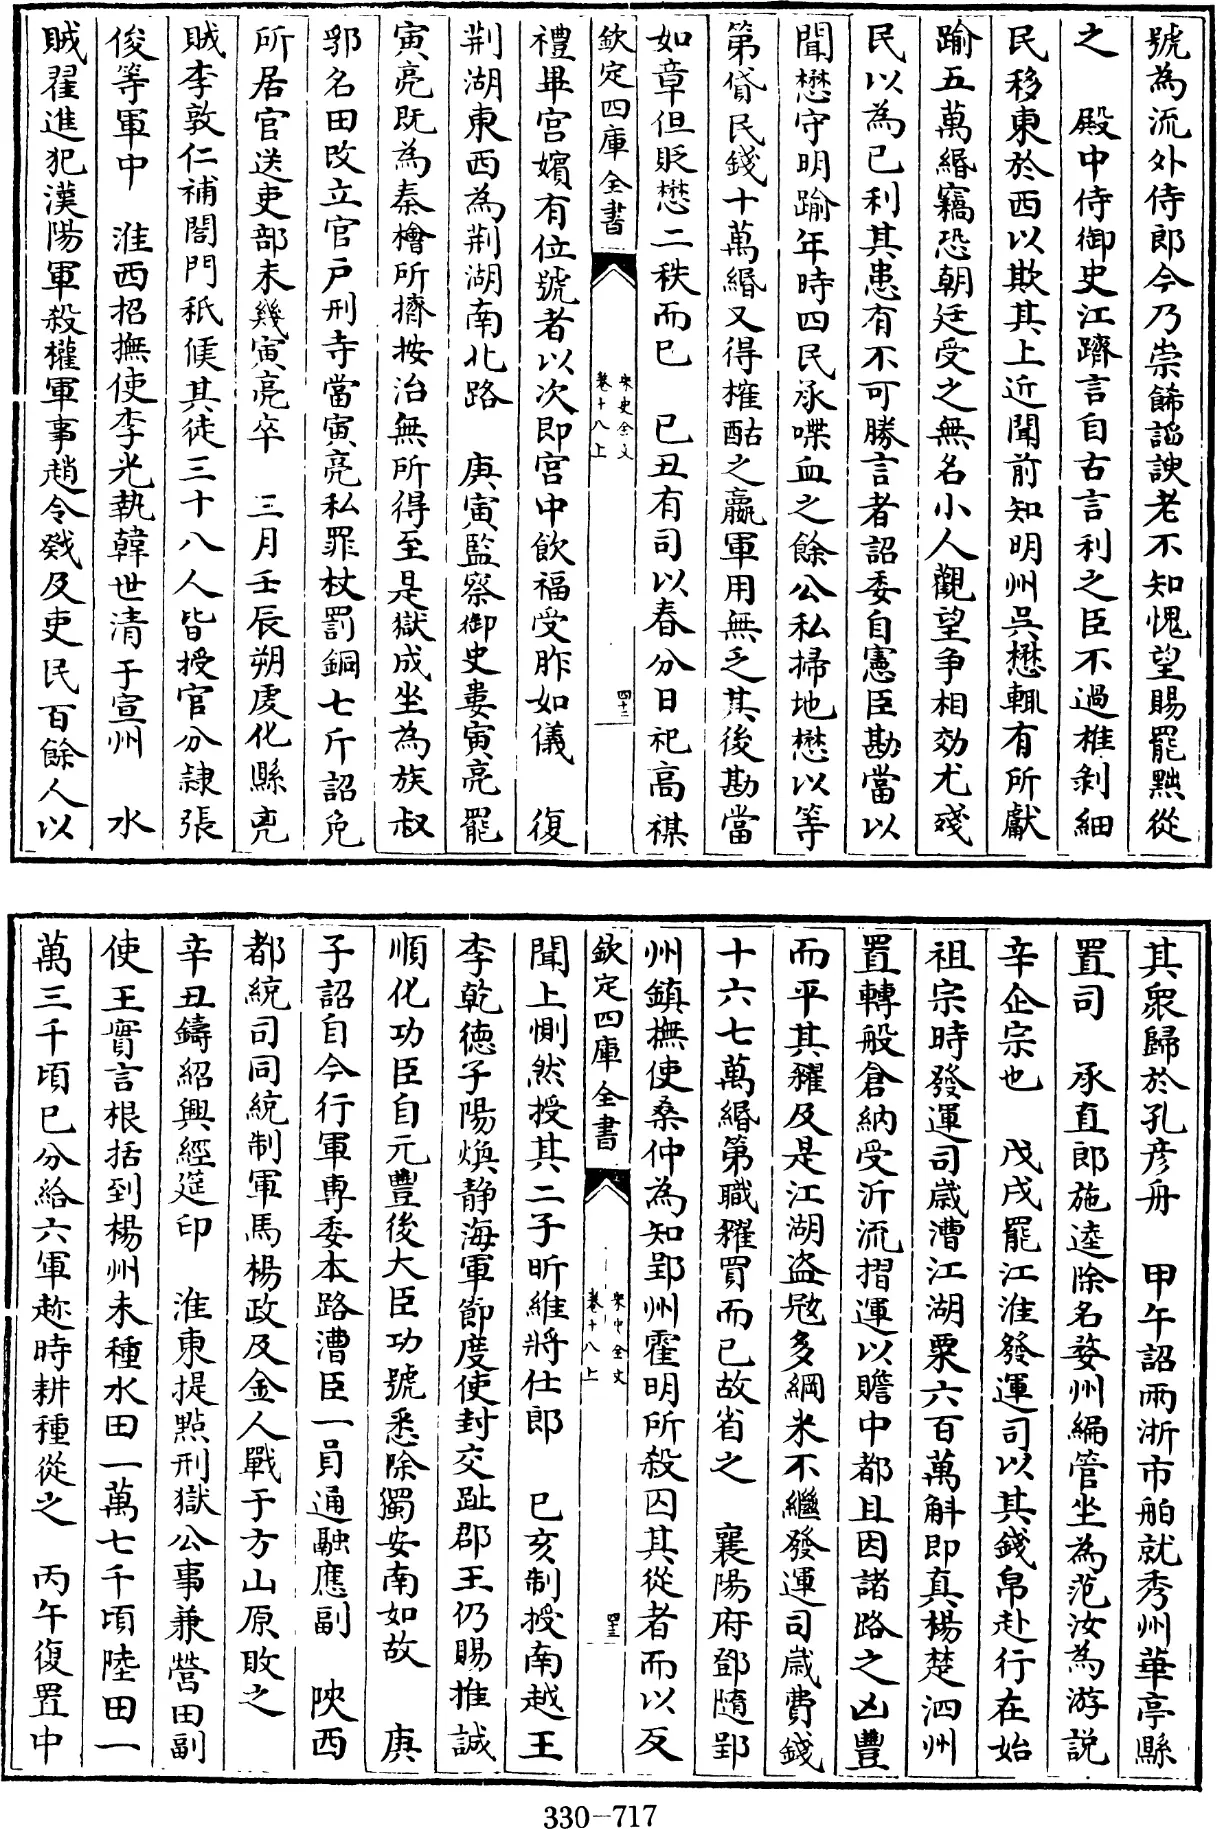 號為流外侍郎今乃崇飾謟諛老不知愧望賜罷黜從
之　殿中侍御史江躋言自古言利之臣不過椎剝細
民移東於西以欺其上近聞前知明州吳懋輒有所獻
踰五萬緡竊恐朝廷受之無名小人觀望争相効尤殘
民以為已利其患有不可勝言者詔委自憲臣勘當以
聞懋守明踰年時四民承喋血之餘公私掃地懋以等
第貸民錢十萬緡又得榷酤之贏軍用無乏其後勘當
如章但貶懋二秩而已　已丑有司以春分日祀高禖
欽定四庫全書
宋史全文
卷十八上
四十二
禮畢宫嬪有位號者以次即宫中飲福受胙如儀　復
荆湖東西為荆湖南北路　庚寅監察御史婁寅亮罷
寅亮既為秦檜所擠按治無所得至是獄成坐為族叔
郭名田改立官户刑寺當寅亮私罪杖罰銅七斤詔免
所居官送吏部未幾寅亮卒　三月壬辰朔虔化縣兇
賊李敦仁補閤門祇候其徒三十八人皆授官分隷張
俊等軍中　淮西招撫使李光執韓世清于宣州　水
賊翟進犯漢陽軍殺權軍事趙令戣及吏民百餘人以
其衆歸於孔彦舟　甲午詔兩浙市舶就秀州華亭縣
置司　承直郎施逵除名婺州編管坐為范汝為游説
辛企宗也　戊戌罷江淮發運司以其錢帛赴行在始
祖宗時發運司歲漕江湖粟六百萬斛即真楊楚泗州
置轉般倉納受泝流摺運以贍中都且因諸路之凶豐
而平其糴及是江湖盗冦多綱米不繼發運司歲費錢
十六七萬緡第職糴買而已故省之　襄陽府鄧隨郢
州鎮撫使桑仲為知郢州霍明所殺囚其從者而以反
欽定四庫全書
宋史全文
卷十八上
四十三
聞上惻然授其二子昕維將仕郎　已亥制授南越王
李乾德子陽煥静海軍節度使封交趾郡王仍賜推誠
順化功臣自元豐後大臣功號悉除獨安南如故　庚
子詔自今行軍専委本路漕臣一員通融應副　陜西
都統司同統制軍馬楊政及金人戰于方山原敗之
辛丑鑄紹興經筵印　淮東提點刑獄公事兼營田副
使王實言根括到楊州未種水田一萬七千頃陸田一
萬三千頃已分給六軍趂時耕種從之　丙午復置中
330-717